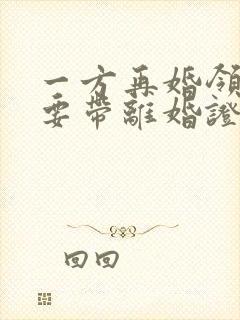 一方再婚領
要帶離婚證
回回